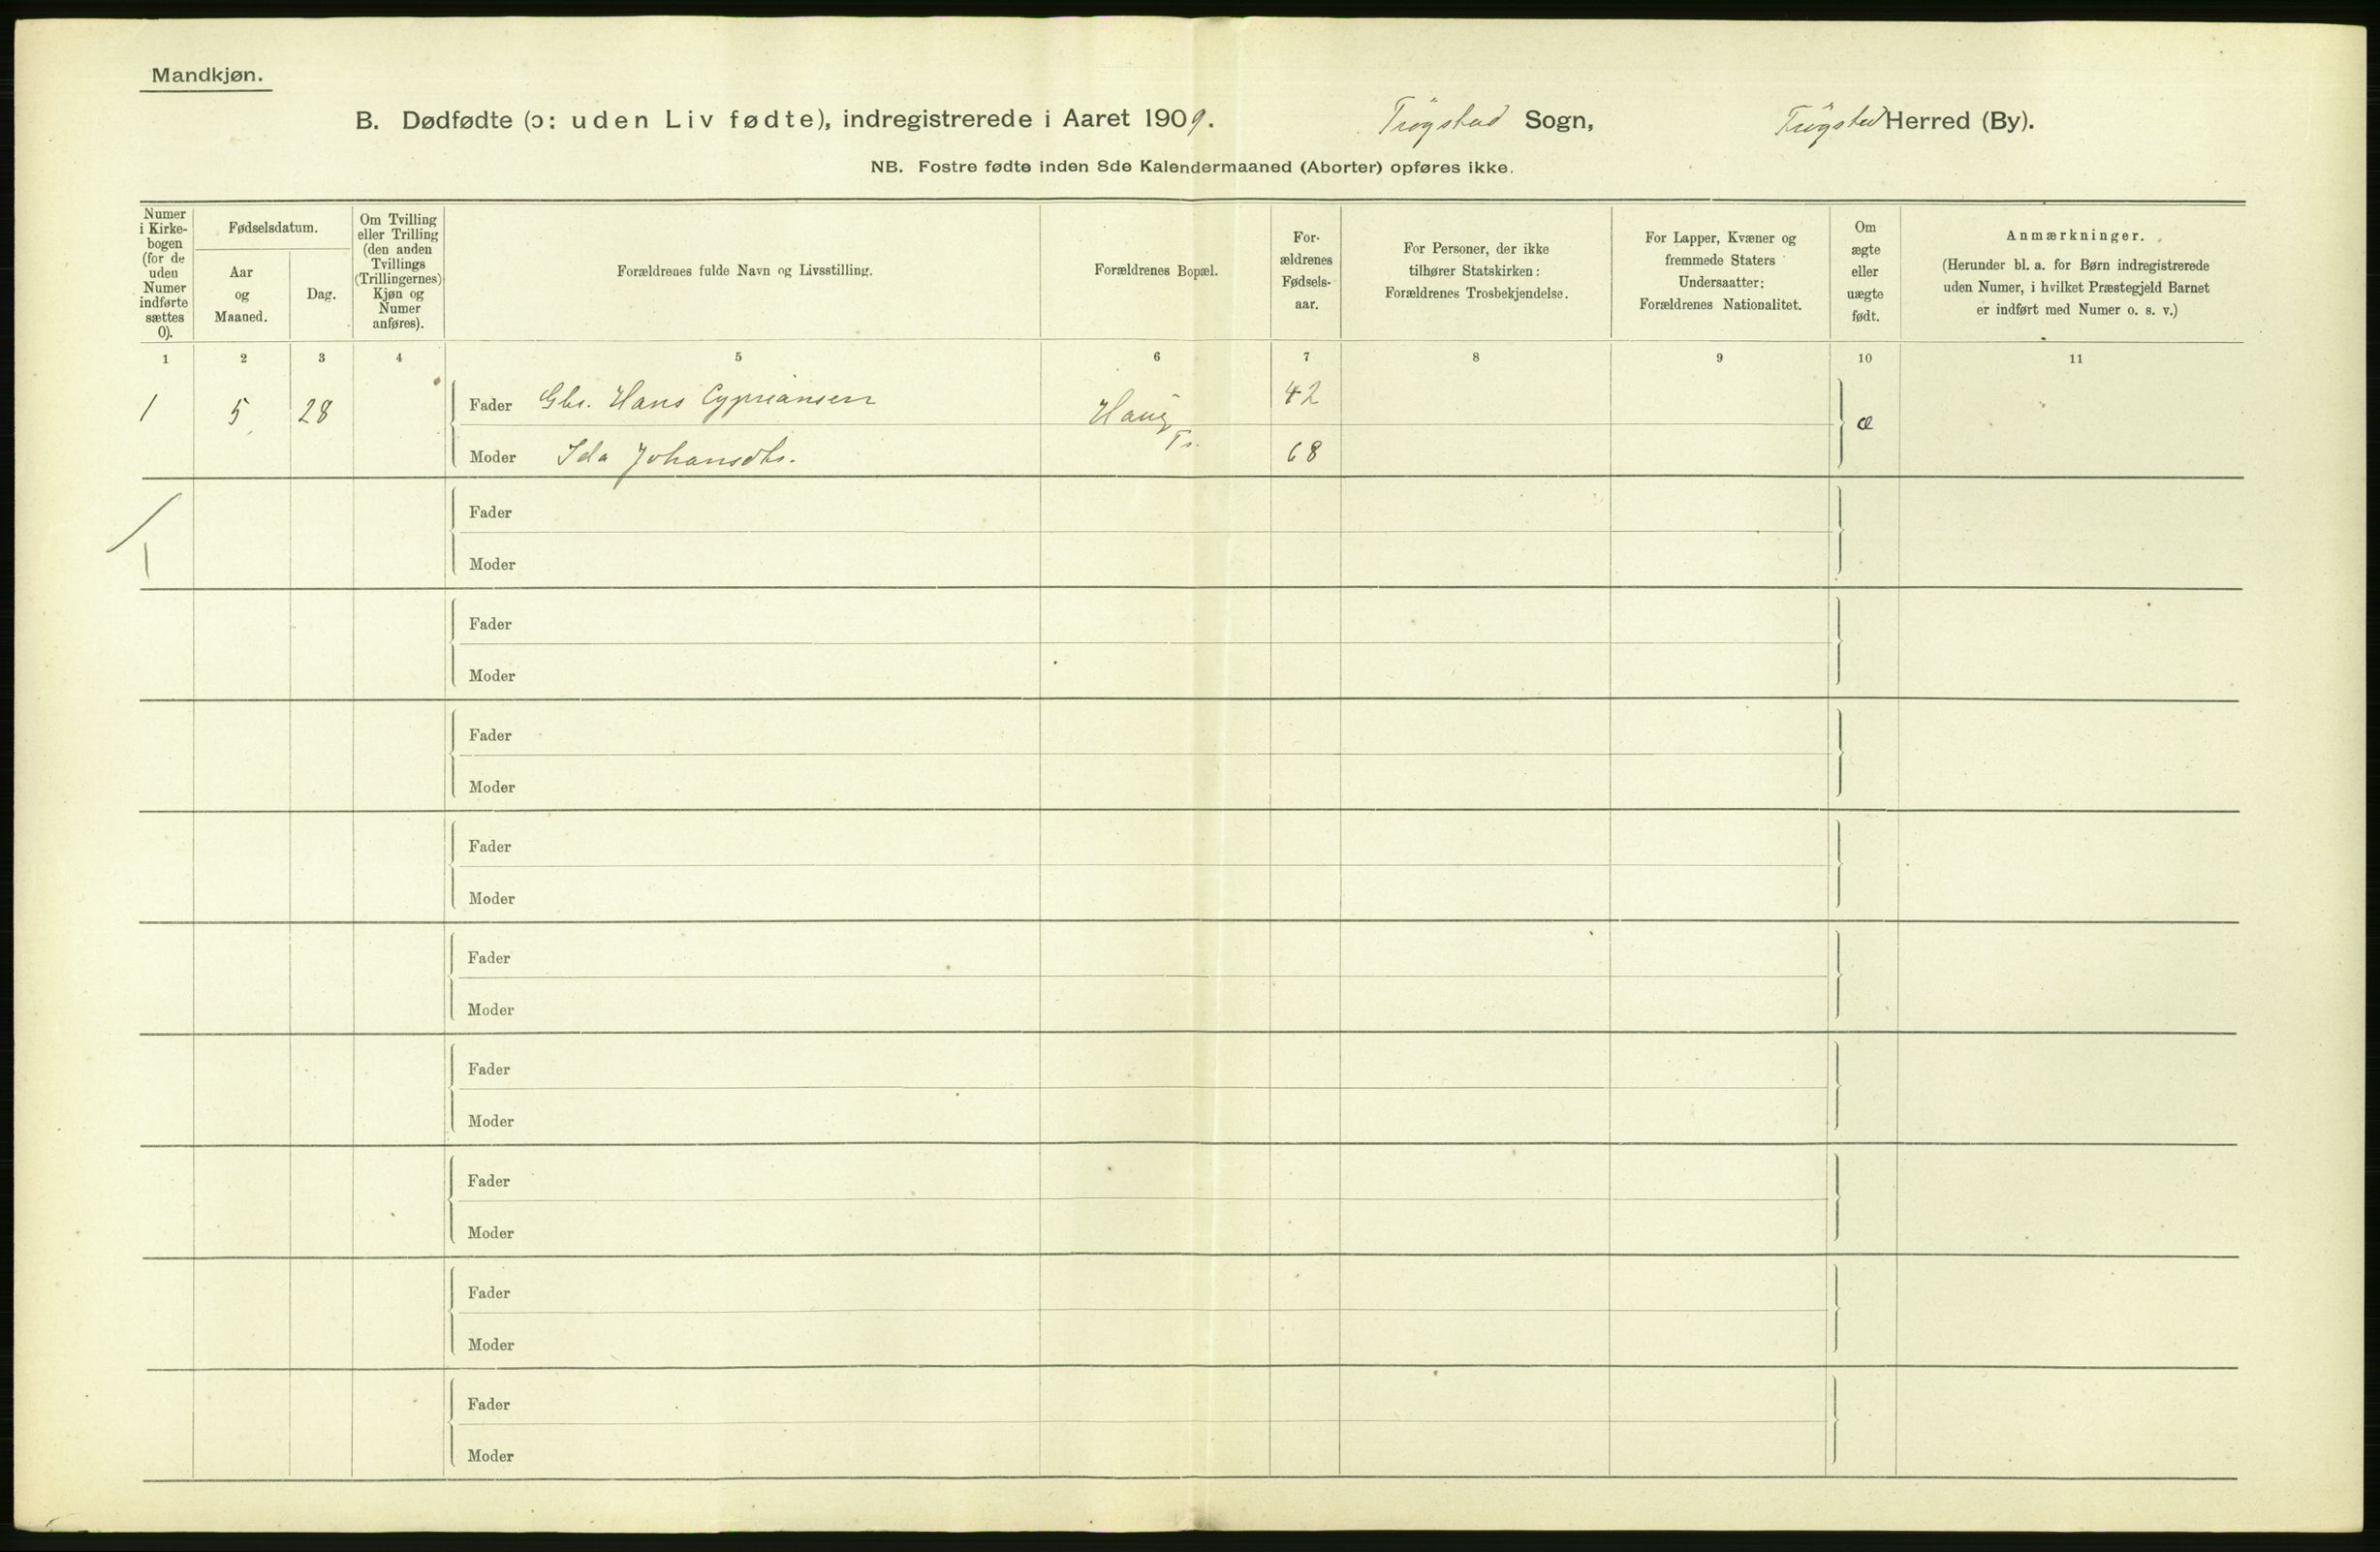 Mandkjøn.
B. Dødfødte (ɔ: uden Liv fødte), indregistrerede i Aaret 1909. Trøgstad Sogn, Trøgstad Herred (By).
NB. Fostre fødte inden 8de Kalendermaaned (Aborter) opføres ikke.
Numer
i Kirke-
bogen
(for de
uden
Numer
indførte
sættes
0).
Fødselsdatum.
Aar
og
Maaned.
Dag.
Om Tvilling
eller Trilling
(den anden
Tvillings
(Trillingernes)
Kjøn og
Numer
anføres).
Forældrenes fulde Navn og Livsstilling.
Forældrenes Bopæl.
For-
ældrenes
Fødsels-
aar.
For Personer, der ikke
tilhører Statskirken:
Forældrenes Trosbekjendelse.
For Lapper, Kvæner og
fremmede Staters
Undersaatter:
Forældrenes Nationalitet.
Om
ægte
eller
uægte
født.
Anmærkninger.
(Herunder bl. a. for Børn indregistrerede
uden Numer, i hvilket Præstegjeld Barnet
er indført med Numer o. s. v.)
1 2 3 4 5 6 7 8 9 10 11
1 5 28 Fader Gbr. Hans Cypriansen Haug 42 æ
Moder Ida Johansdtr. Tr. 68
Fader
1 Moder
Fader
Moder
Fader
Moder
Fader
Moder
Fader
Moder
Fader
Moder
Fader
Moder
Fader
Moder
Fader
Moder